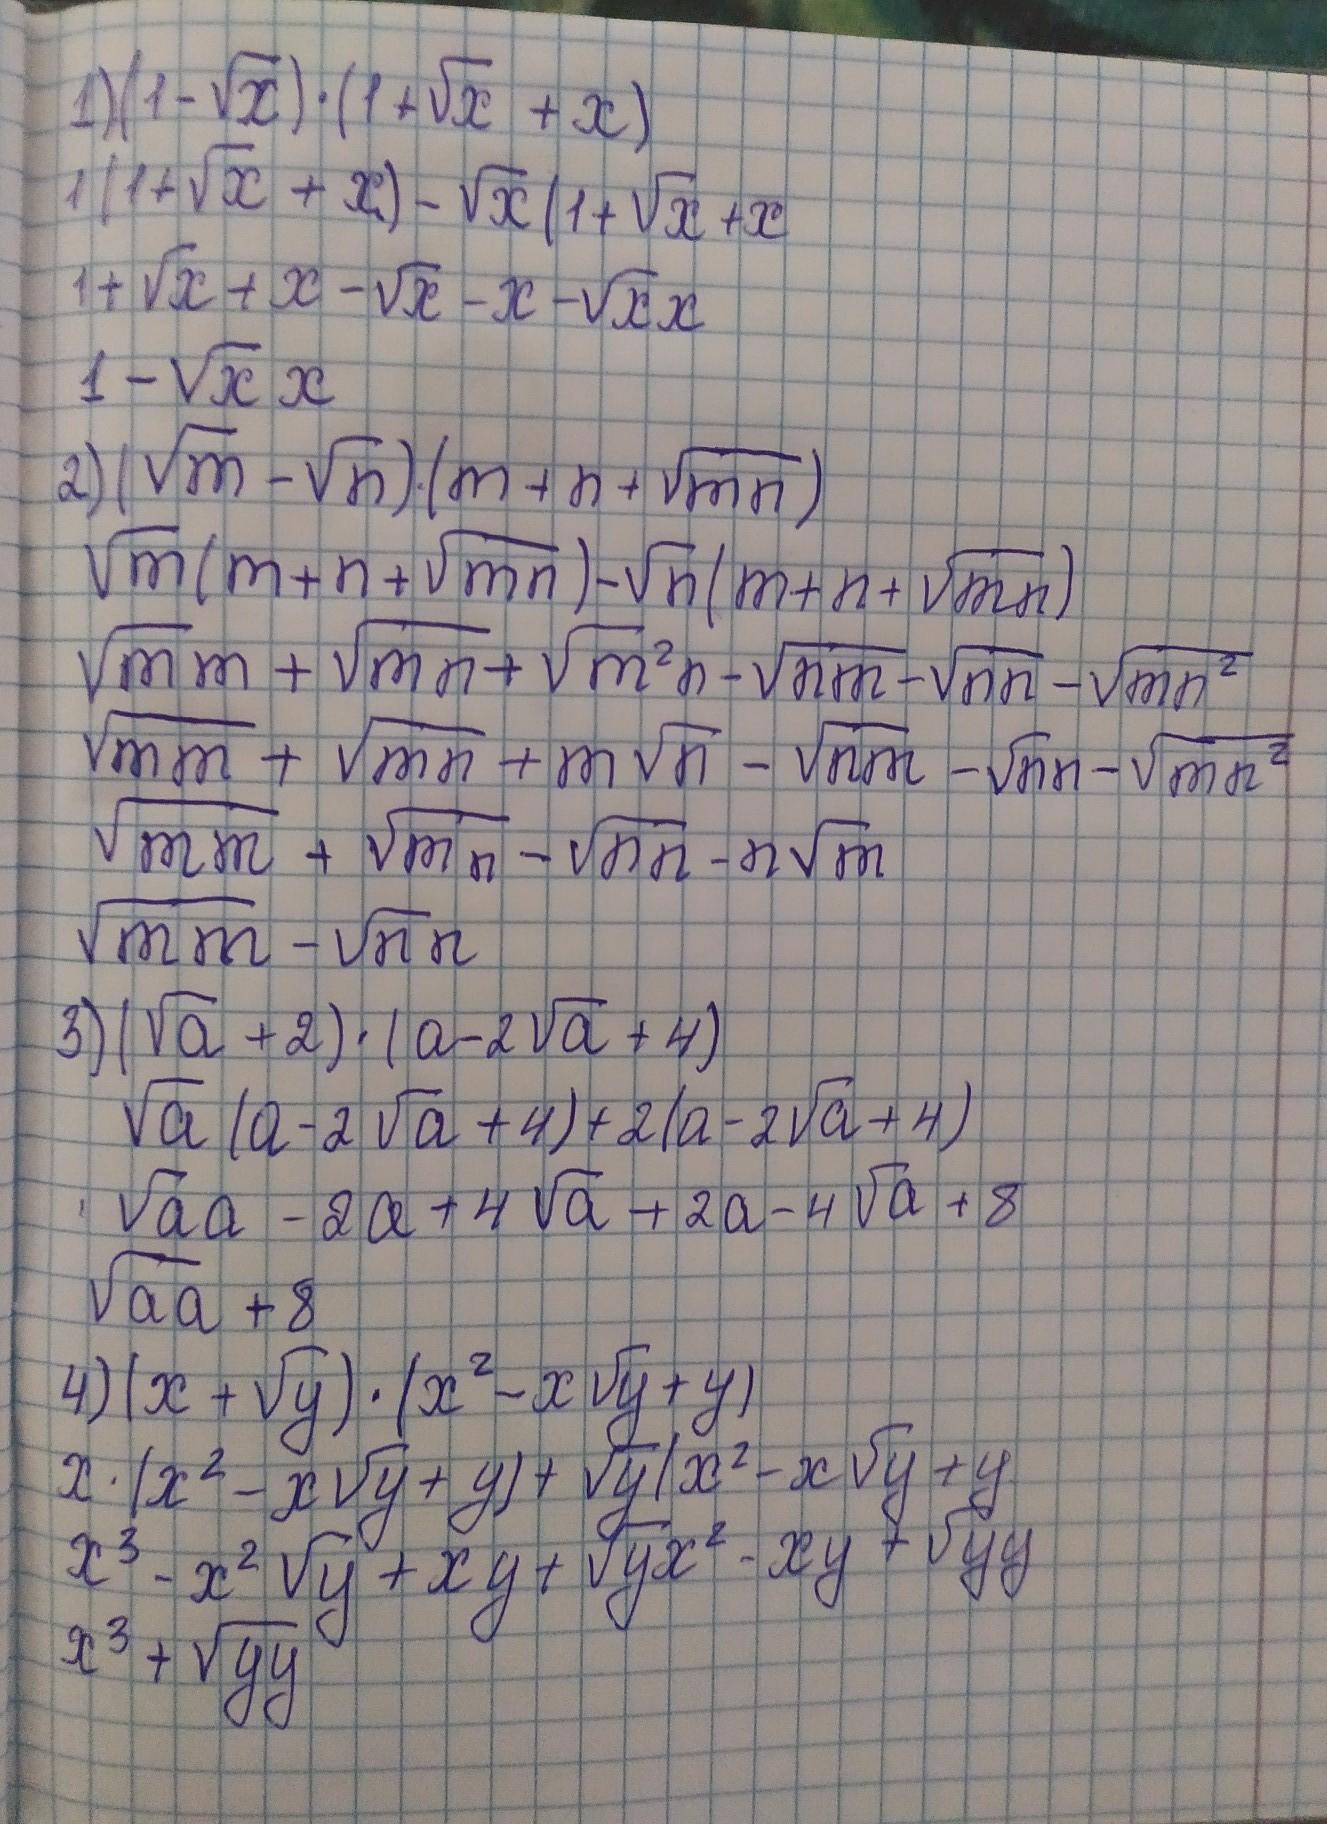 1) (1-√x)·(1+√x + x)
1(1+√x + x) - √x(1+√x+x
1+√x+x-√x-x-√x x
1-√x x
2) (√m-√n)·(m+n+√mn)
√m(m+n+√mn)-√n(m+n+√mn)
√m m + √mn + √m²n - √nm - √nn - √mn²
√mm + √mn + m√n - √nm - √n n - √mn²
√mm + √mn - √nn - n√m
√mm - √n n
3) (√a+2)·(a-2√a+4)
√a(a-2√a+4)+2(a-2√a+4)
√a a - 2a+4√a+2a-4√a+8
√aa + 8
4) (x+√y)·(x²-x√y+y)
x·(x²-x√y+y)+√y(x²-x√y+y
x³-x²√y+xy+√yx²-xy+√yy
x³+√yy